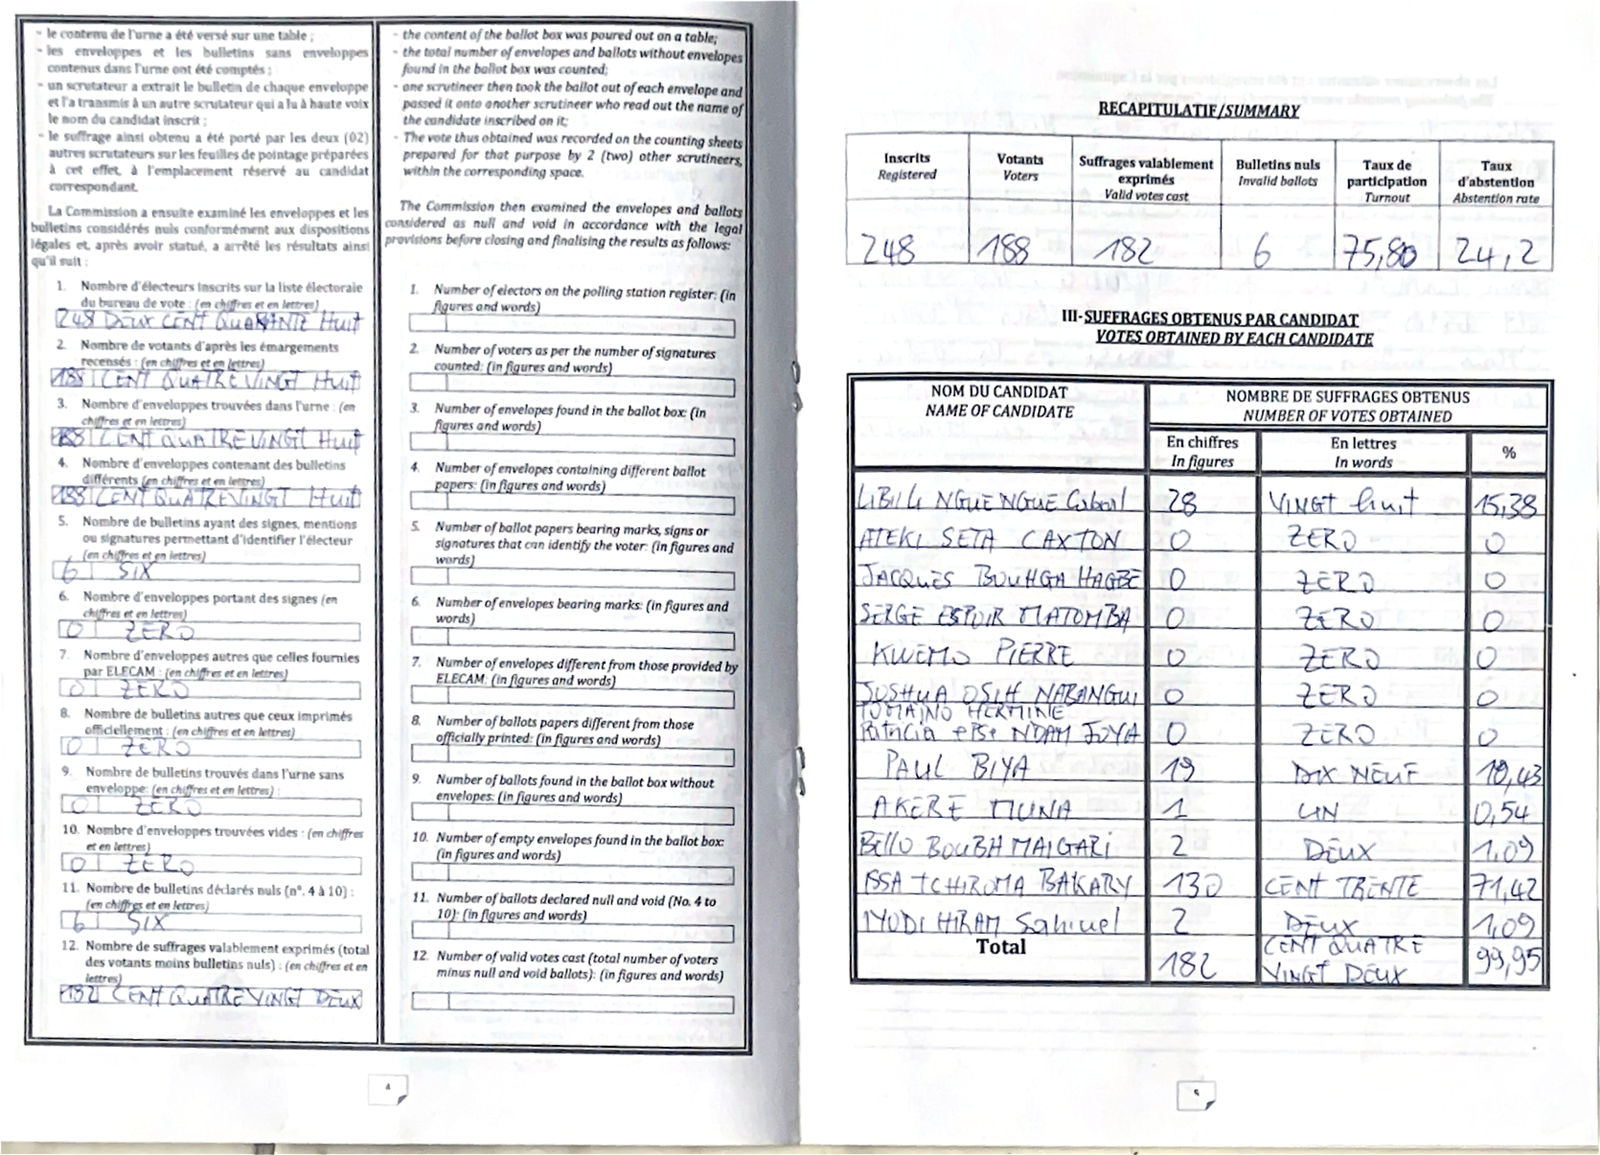 - le contenu de l'urne a été versé sur une table ;
- les enveloppes et les bulletins sans enveloppes
contenus dans l'urne ont été comptés ;
- un scrutateur a extrait le bulletin de chaque enveloppe
et l'a transmis à un autre scrutateur qui a lu à haute voix
le nom du candidat inscrit ;
- le suffrage ainsi obtenu a été porté par les deux (02)
autres scrutateurs sur les feuilles de pointage préparées
à cet effet, à l'emplacement réservé au candidat
correspondant.
La Commission a ensuite examiné les enveloppes et les
bulletins considérés nuls conformément aux dispositions
légales et, après avoir statué, a arrêté les résultats ainsi
qu'il suit :
1. Nombre d'électeurs inscrits sur la liste électorale
du bureau de vote : (en chiffres et en lettres)
248 DEUX CENT QUARANTE HUIT
2. Nombre de votants d'après les émargements
recensés : (en chiffres et en lettres)
188 CENT QUATRE VINGT HUIT
3. Nombre d'enveloppes trouvées dans l'urne : (en
chiffres et en lettres)
188 CENT QUATRE VINGT HUIT
4. Nombre d'enveloppes contenant des bulletins
différents (en chiffres et en lettres)
188 CENT QUATRE VINGT HUIT
5. Nombre de bulletins ayant des signes, mentions
ou signatures permettant d'identifier l'électeur
(en chiffres et en lettres)
6 SIX
6. Nombre d'enveloppes portant des signes (en
chiffres et en lettres)
0 ZERO
7. Nombre d'enveloppes autres que celles fournies
par ELECAM : (en chiffres et en lettres)
0 ZERO
8. Nombre de bulletins autres que ceux imprimés
officiellement : (en chiffres et en lettres)
0 ZERO
9. Nombre de bulletins trouvés dans l'urne sans
enveloppe: (en chiffres et en lettres) :
0 ZERO
10. Nombre d'enveloppes trouvées vides : (en chiffres
et en lettres)
0 ZERO
11. Nombre de bulletins déclarés nuls (n°. 4 à 10) :
(en chiffres et en lettres)
6 SIX
12. Nombre de suffrages valablement exprimés (total
des votants moins bulletins nuls) : (en chiffres et en
lettres)
182 CENT QUATRE VINGT DEUX
- the content of the ballot box was poured out on a table;
- the total number of envelopes and ballots without envelopes
found in the ballot box was counted;
- one scrutineer then took the ballot out of each envelope and
passed it onto another scrutineer who read out the name of
the candidate inscribed on it;
- The vote thus obtained was recorded on the counting sheets
prepared for that purpose by 2 (two) other scrutineers,
within the corresponding space.
The Commission then examined the envelopes and ballots
considered as null and void in accordance with the legal
provisions before closing and finalising the results as follows:
1. Number of electors on the polling station register: (in
figures and words)
2. Number of voters as per the number of signatures
counted: (in figures and words)
3. Number of envelopes found in the ballot box: (in
figures and words)
4. Number of envelopes containing different ballot
papers: (in figures and words)
5. Number of ballot papers bearing marks, signs or
signatures that can identify the voter: (in figures and
words)
6. Number of envelopes bearing marks: (in figures and
words)
7. Number of envelopes different from those provided by
ELECAM: (in figures and words)
8. Number of ballots papers different from those
officially printed: (in figures and words)
9. Number of ballots found in the ballot box without
envelopes: (in figures and words)
10. Number of empty envelopes found in the ballot box:
(in figures and words)
11. Number of ballots declared null and void (No. 4 to
10): (in figures and words)
12. Number of valid votes cast (total number of voters
minus null and void ballots): (in figures and words)
4
RECAPITULATIF/SUMMARY
Inscrits Registered | Votants Voters | Suffrages valablement exprimés Valid votes cast | Bulletins nuls Invalid ballots | Taux de participation Turnout | Taux d'abstention Abstention rate
248 188 182 6 75,80 24,2
III- SUFFRAGES OBTENUS PAR CANDIDAT
VOTES OBTAINED BY EACH CANDIDATE
NOM DU CANDIDAT NOMBRE DE SUFFRAGES OBTENUS
NAME OF CANDIDATE NUMBER OF VOTES OBTAINED
En chiffres En lettres %
In figures In words
LIBILI NGUENGUE Cabral 28 VINGT huit 15,38
ATEKI SETA CAXTON 0 ZERO 0
JACQUES BOUHGA HAGBE 0 ZERO 0
SERGE ESPOIR MATOMBA 0 ZERO 0
KWEMO PIERRE 0 ZERO 0
JOSHUA OSIH NABANGUI 0 ZERO 0
TOMAINO HERMINE
Patricia epse NDAM JOYA 0 ZERO 0
PAUL BIYA 19 DIX NEUF 10,43
AKERE MUNA 1 UN 0,54
BELLO BOUBH MAIGARI 2 DEUX 1,09
ISSA TCHIROMA BAKARY 130 CENT TRENTE 71,42
IYODI HIRAM Samuel 2 DEUX 1,09
Total 182 CENT QUATRE VINGT DEUX 99,95
5